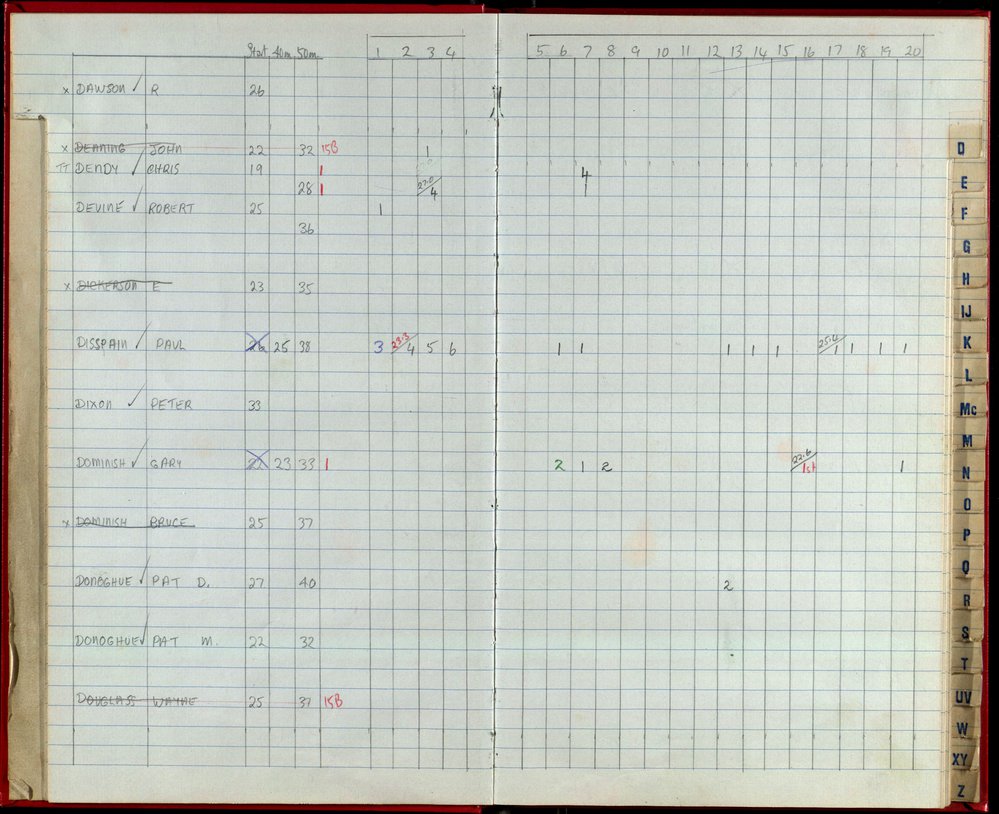 Start 40m 50m 1 2 3 4 5 6 7 8 9 10 11 12 13 14 15 16 17 18 19 20
x DAWSON ✓ R 26
x DENNING JOHN 22 32 15B 1
TT DENDY ✓ CHRIS 19 1 4
28 1 27.0 4
DEVINE ✓ ROBERT 25 1
36
x DICKERSON E 23 35
DISSPAIN ✓ PAUL 26 25 38 3 23.3 4 5 6 1 1 1 1 1 25.4 1 1 1 1
DIXON ✓ PETER 33
DOMINISH ✓ GARY 23 33 1 2 1 2 22.6 1st 1
x DOMINISH BRUCE 25 37
DONOGHUE ✓ PAT D. 27 40 2
DONOGHUE ✓ PAT M. 22 32
DOUGLASS WAYNE 25 37 15B
D
E
F
G
H
IJ
K
L
Mc
M
N
O
P
Q
R
S
T
UV
W
XY
Z